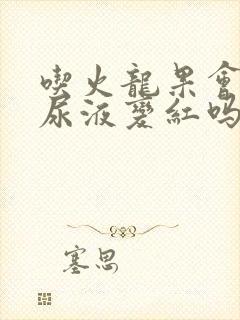 喫火龍果會
尿液變紅嗎
塞思